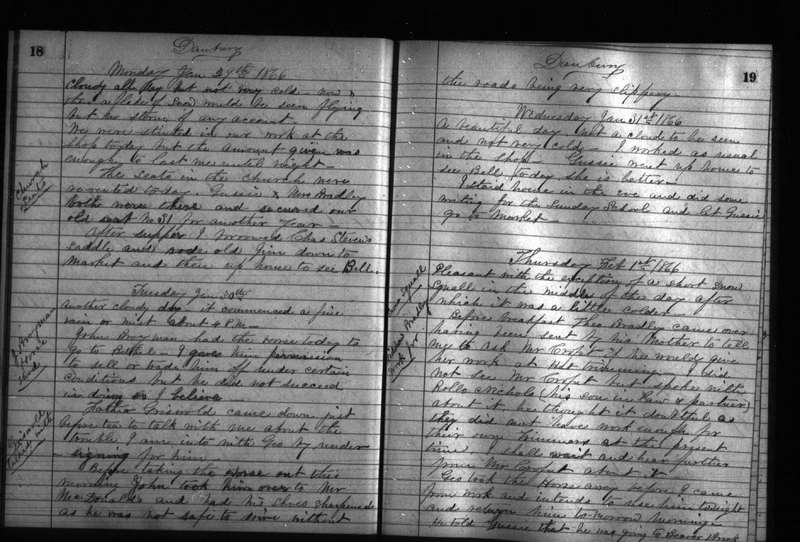 18
Danbury
Monday Jan 29th 1866
Cloudy all day but not very cold - now &
then a flake of Snow would be seen flying
but no storm of any account.
We were stinted in our work at the
shop today but the amount given was
enough to last me until night -
Church Seats
The seats in the Church were
rented today. Gussie & Mrs Bradley
both were there and secured our
old seat No 31 for another Year -
After supper I borrowed Chas Stevens
saddle and rode old Jim down to
Market and then up home to see Bell.
Tuesday Jan 30th
Another cloudy day - it commenced a fine
rain or mist about 8 P.M. -
John Bouyman had the Horse today to
go to Bethel - I gave him permission
to sell or trade him off under certain
conditions but he did not succeed
in doing so I believe
Father Griswold came down just
before tea to talk with me about the
trouble I am into with Geo by under
signing for him
Before taking the Horse out this
morning John took him over to Mr
McDonalds and had his Shoes sharpened
as he was not safe to drive without
19
Danbury
the roads being very slippery -
Wednesday Jan 31st 1866
A beautiful day. Not a cloud to be seen
and not very cold - I worked as usual
in the shop - Gussie went up home to
see Bell today she is better
I staid home in the eve and did some
writing for the Sunday School and let Gussie
go to Market -
Thursday Feb 1st 1866
Snow Squall
Pleasant with the exception of a short snow
squall in the middle of the day after
which it was a little colder -
Before breakfast Theo Bradley came over
having been sent by his Mother to tell
me to ask Mr Crofut if he would give
her work at Hat trimming - I did
not see Mr Crofut but spoke with
Rollo Nichols (his son in law & partner)
about it he thought it doubtful as
they did not have work enough for
their own trimmers at the present
time I shall wait and hear further
from Mr Crofut about it
Geo took the Horse away before I came
from work and intends to use him tonight
and return him to-morrow morning -
He told Gussie that he was going to Beaver Brook